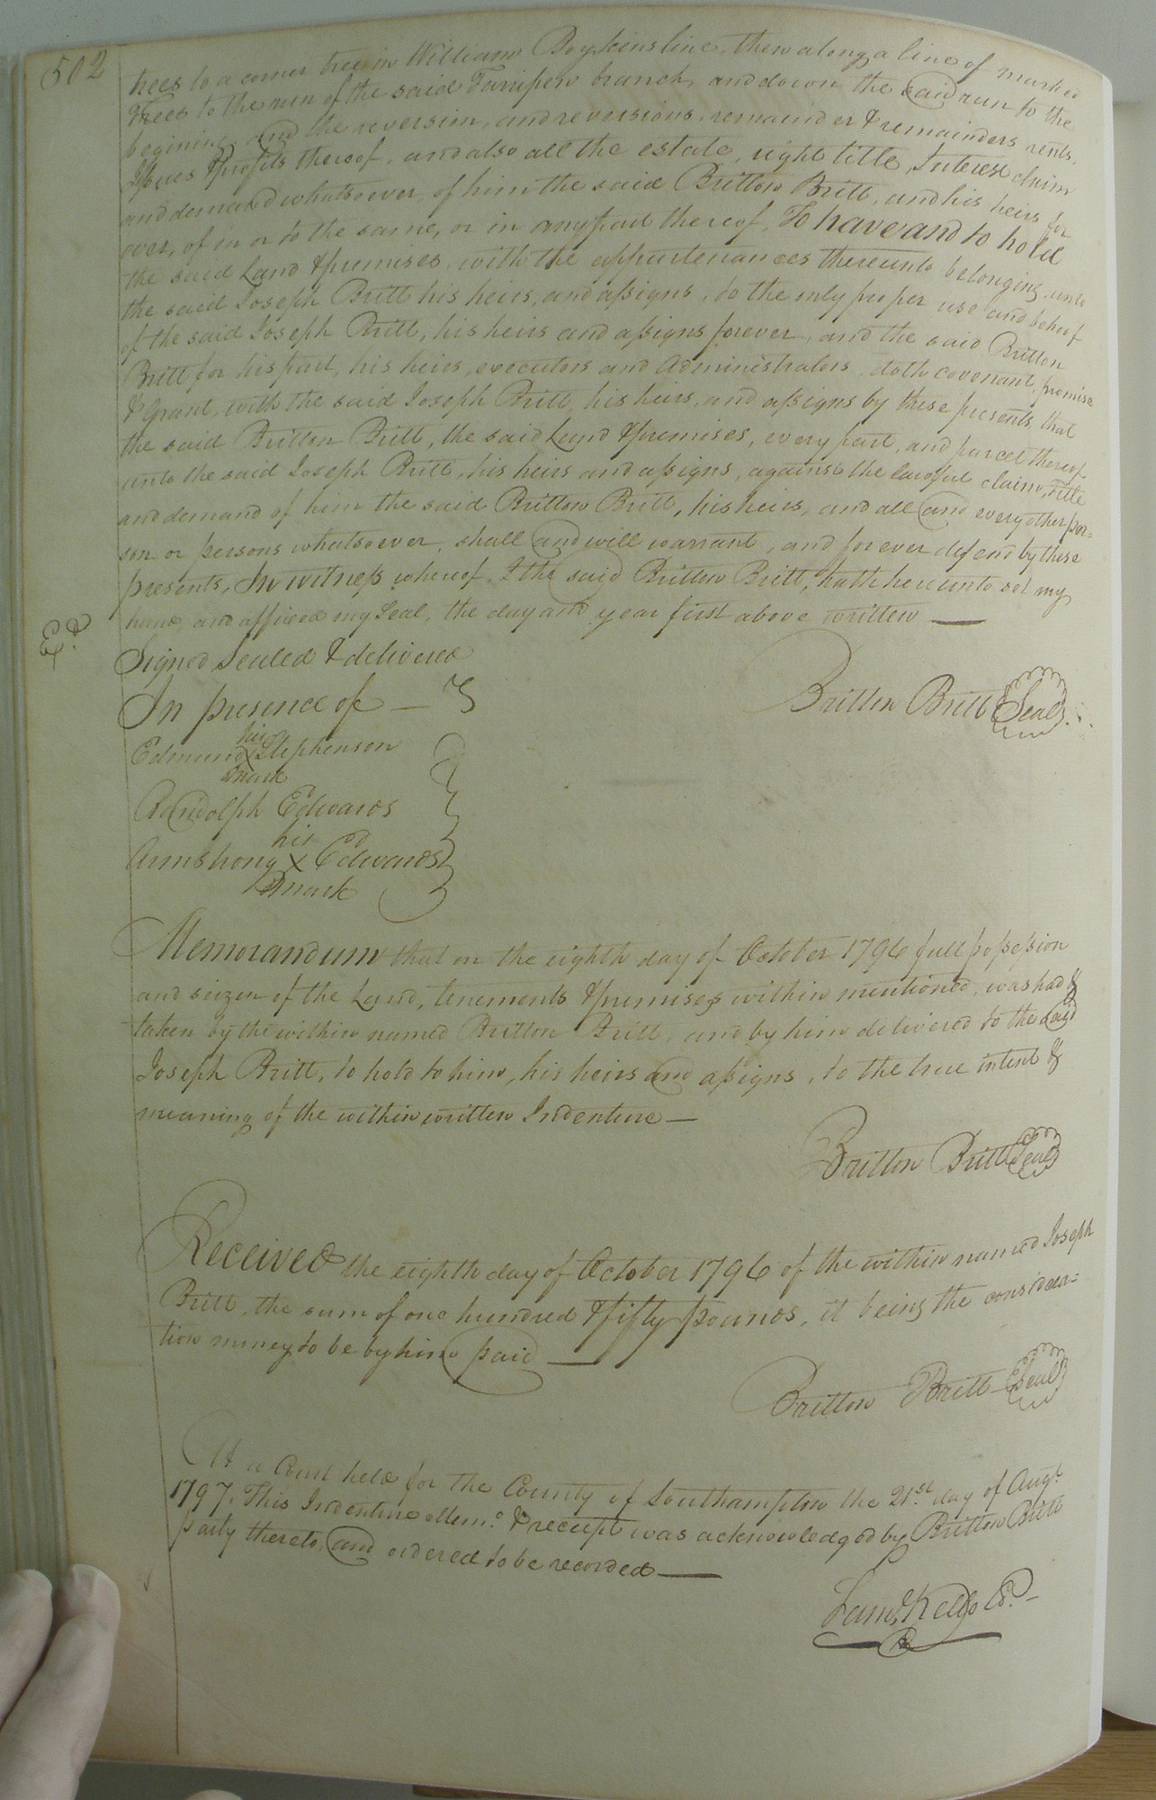 502
trees to a corner tree in William Boykins line, then along a line of marked
Trees to the run of the said Tarripen branch, and down the said run to the
begining, and the reversion, and reversions, remainder & remainders rents,
Issues & profits thereof, and also all the estate, right title, Interest claim
and demand whatsoever, of him the said Britton Britt, and his heirs for
ever, of in or to the same, or in any part thereof, To have and to hold
the said Land & premises, with the appurtenances thereunto belonging, unto
the said Joseph Britt his heirs, and assigns, to the only proper use and behoof
of the said Joseph Britt, his heirs and assigns forever, and the said Britton
Britt for his part, his heirs, executors and Administrators, doth covenant, promise
& Grant, with the said Joseph Britt, his heirs, and assigns by these presents, that
the said Britton Britt, the said Land & premises, every part, and parcel thereof
unto the said Joseph Britt, his heirs and assigns, against the lawful claim, title
and demand of him the said Britton Britt, his heirs, and all and every other per=
son or persons whatsoever, shall and will warrant, and forever defend by these
presents, In witness whereof, I the said Britton Britt, hath hereunto set my
hand and affixed my Seal, the day and year first above written —
Ex.d
Signed Sealed & delivered
In presence of —
Britton Britt Seal
his
Edmund X Stephenson
mark
Randolph Edwards
his
Armstrong X Edwards
mark
Memorandum that on the eighth day of October 1796 full possession
and seizen of the Land, tenements & premises within mentioned, was had &
taken by the within named Britton Britt, and by him delivered to the said
Joseph Britt, to hold to him, his heirs and assigns, to the true intent &
meaning of the within written Indenture —
Britton Britt Seal
Received the eighth day of October 1796 of the within named Joseph
Britt, the sum of one hundred & fifty pounds, it being the considera=
tion money to be by him paid —
Britton Britt Seal
At a Court held for the County of Southampton the 21.st day of Aug.t
1797. This Indenture Mem.o & receipt was acknowledged by Britton Britt
party thereto, and ordered to be recorded —
Saml. Kello CC. —